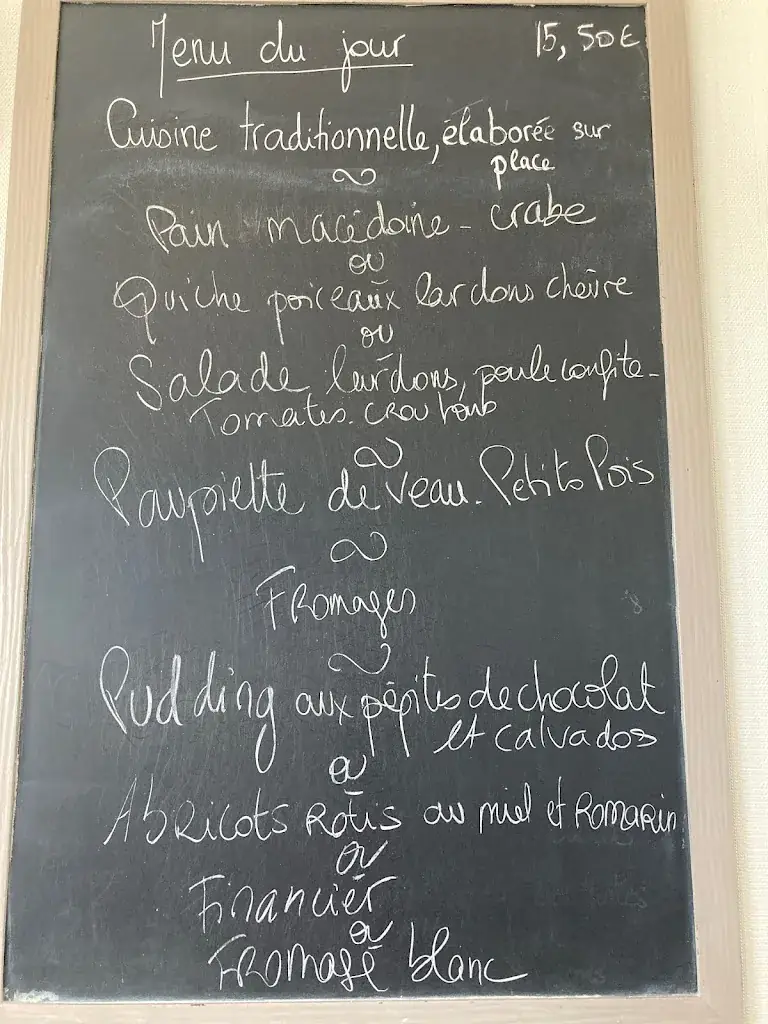 Menu du jour 15,50€
Cuisine traditionnelle, élaborée sur
place
Pain macédoine - crabe
ou
Quiche poireaux lardons chèvre
ou
Salade lardons, poule confite -
Tomates - croutons
Paupiette de veau - Petits Pois
Fromages
Pudding aux pépites de chocolat
et calvados
ou
Abricots Rotis au miel et Romarin
ou
Financier
ou
Fromage blanc